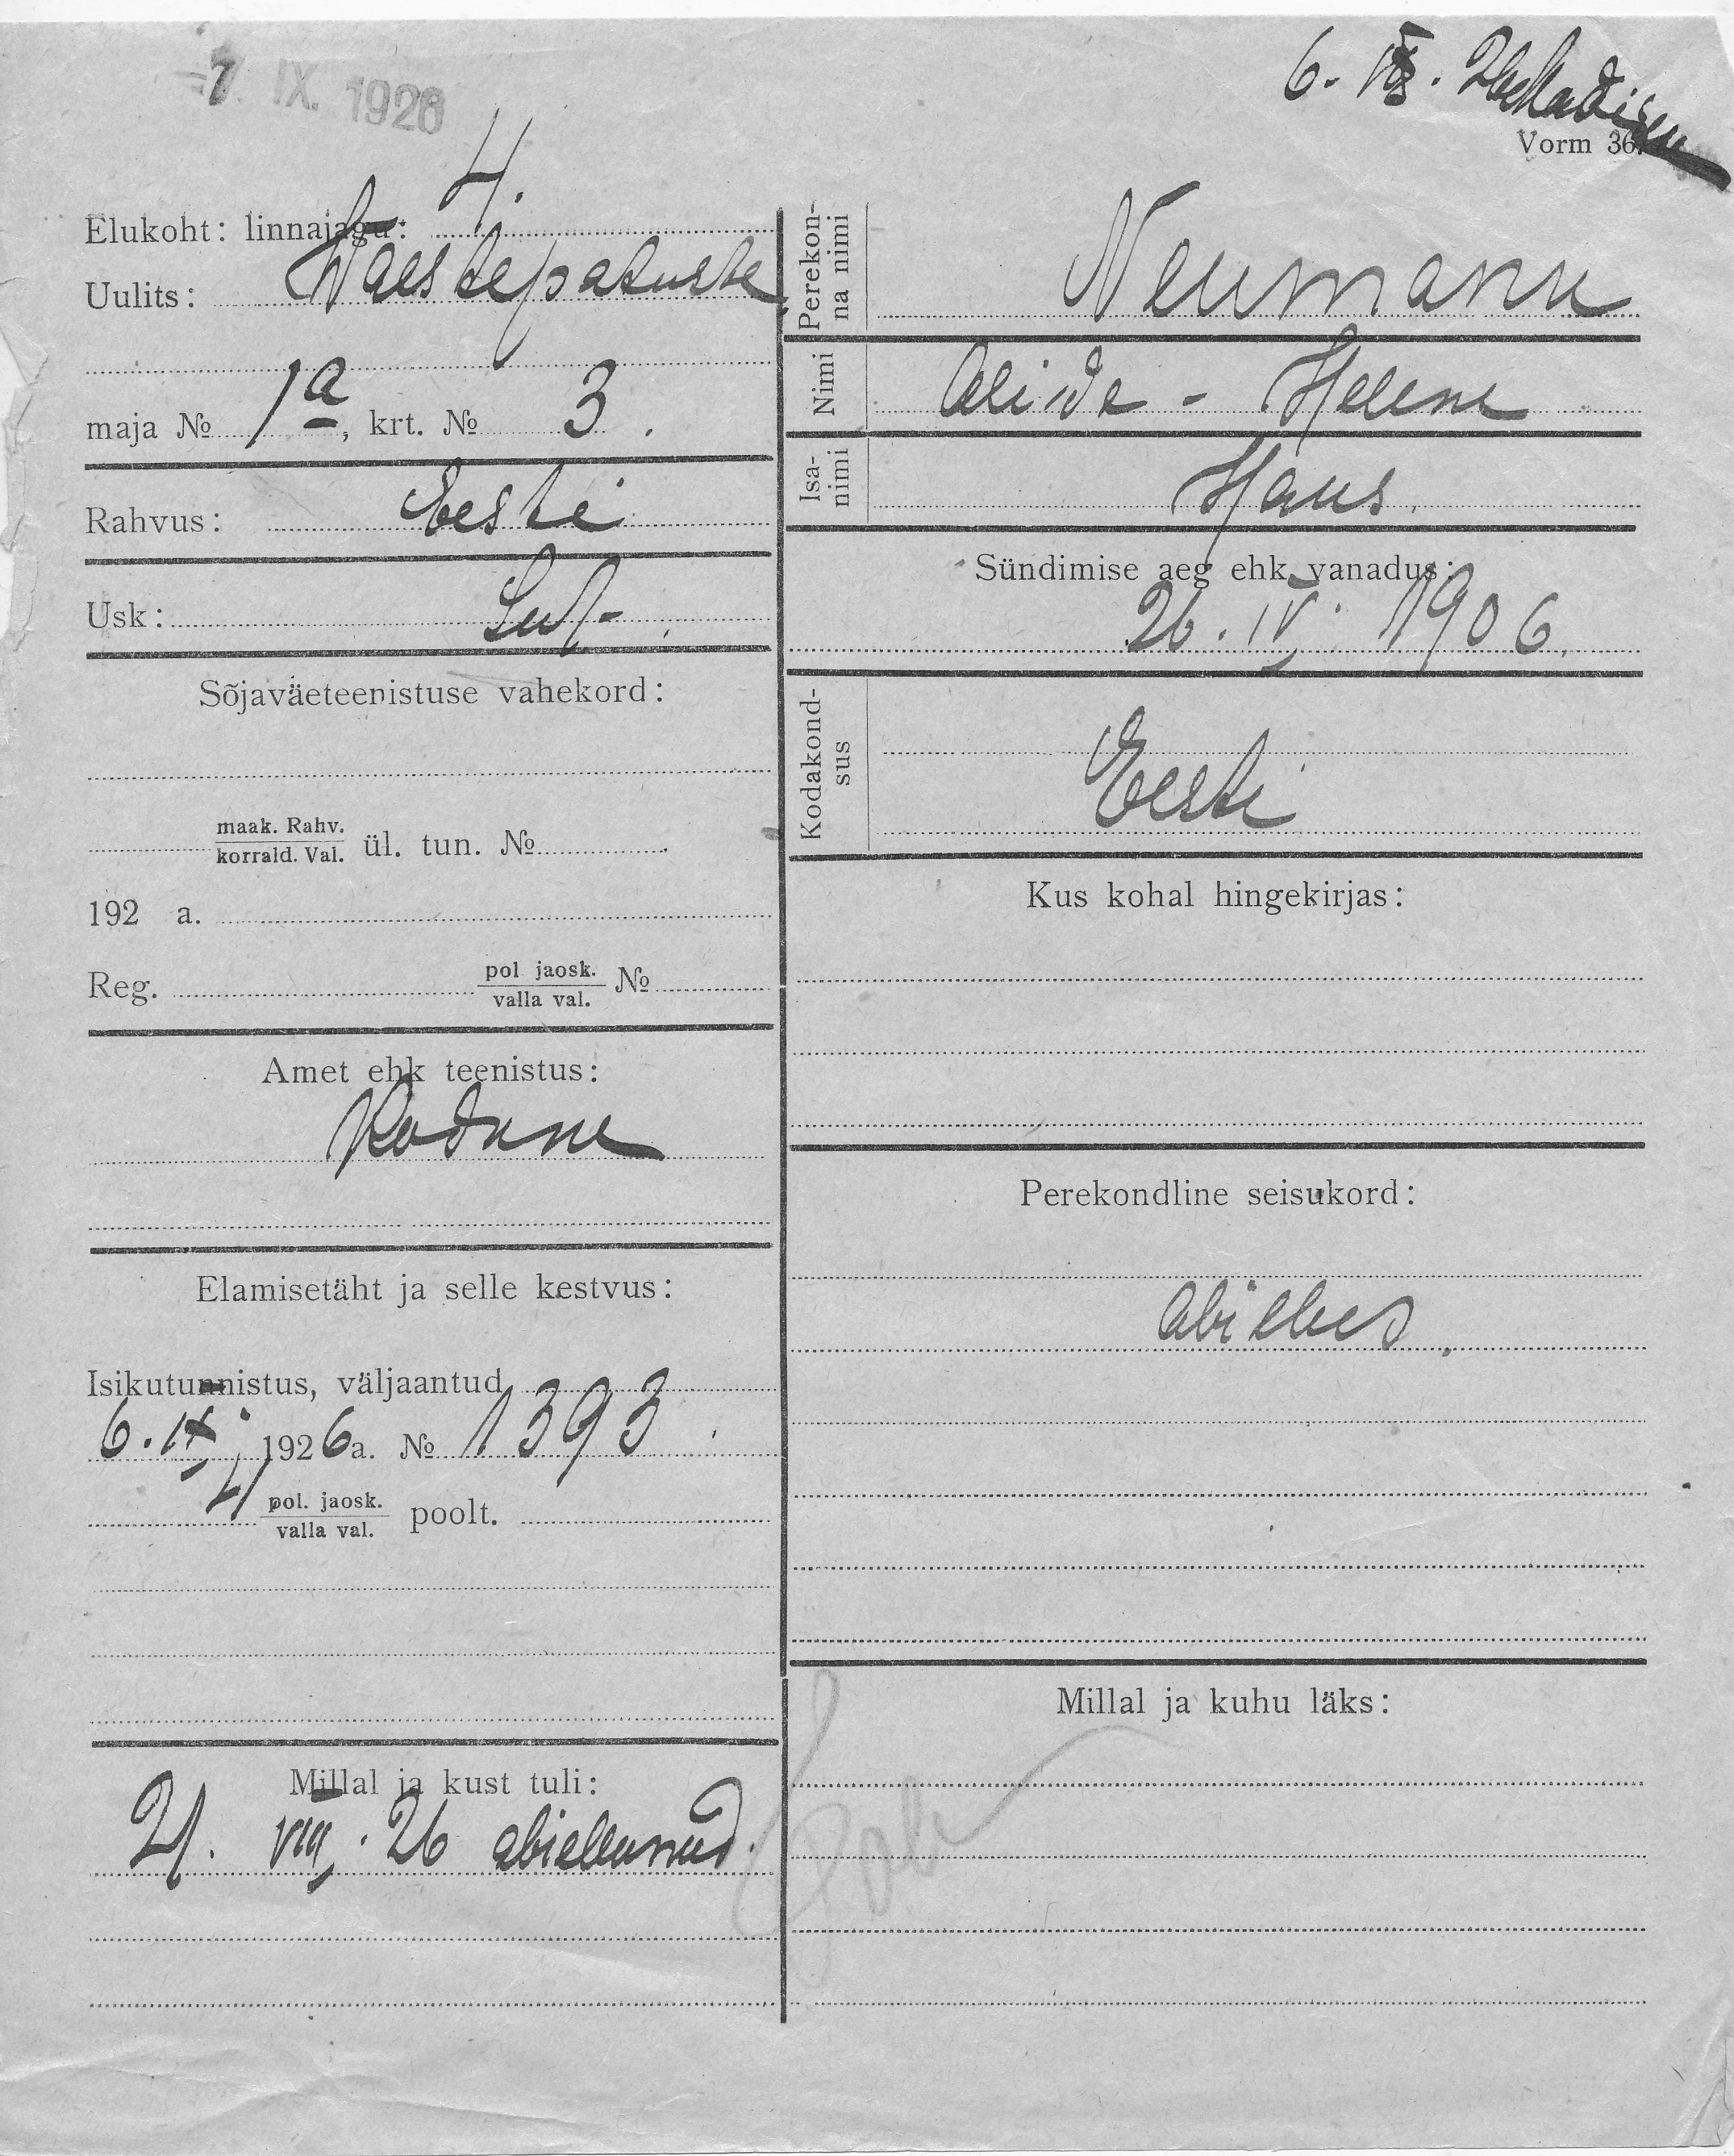 -7. IX. 1926
6. IX. 26
Vorm 36.
Elukoht: linnajagu: 4.
Uulits: Waestepatuste
maja № 1a, krt. № 3.
Rahvus: Eesti
Usk: Lut.
Sõjaväeteenistuse vahekord:
maak. Rahv.
korrald. Val. ül. tun. №
192 a.
Reg. pol jaosk.
valla val. №
Amet ehk teenistus:
Kodune
Elamisetäht ja selle kestvus:
Isikutunnistus, väljaantud
6. IX 1926 a. № 1393.
4 pol. jaosk.
valla val. poolt.
Millal ja kust tuli:
21. VIII. 26 abiellunud.
Perekonna nimi Neumann
Nimi Alide - Helene
Isanimi Hans.
Sündimise aeg ehk vanadus:
26. IV. 1906.
Kodakondsus
Eesti
Kus kohal hingekirjas:
Perekondline seisukord:
abielus.
Millal ja kuhu läks: